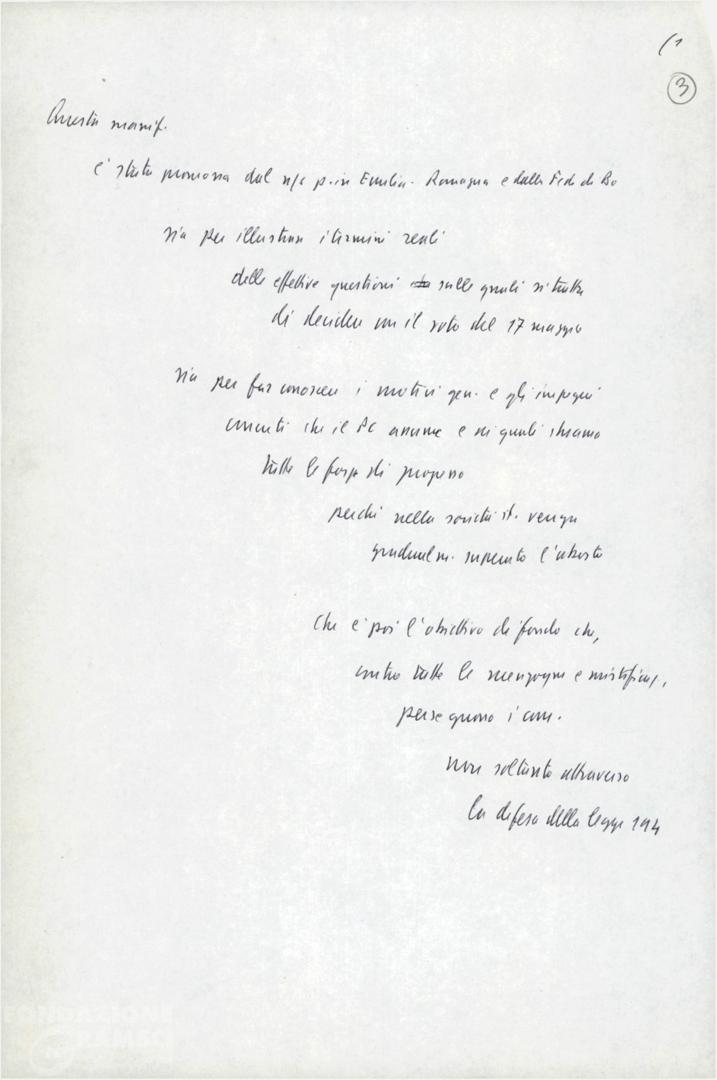 (1
3
Questa manif.
è stata promossa dal n/s p. in Emilia-Romagna e dalla Fed. di Bo
sia per illustrare i termini reali
delle effettive questioni sulle quali si tratta
di decidere con il voto del 17 maggio
sia per far conoscere i motivi gen. e gli impegni
concreti che il PC assume e ai quali chiama
tutte le forze di progresso
perché nella società it. venga
gradualm. superato l'aborto
Che è poi l'obiettivo di fondo che,
contro tutte le menzogne e mistificaz.,
perseguono i com.
non soltanto attraverso
la difesa della legge 194
FONDAZIONE
GRAMSCI